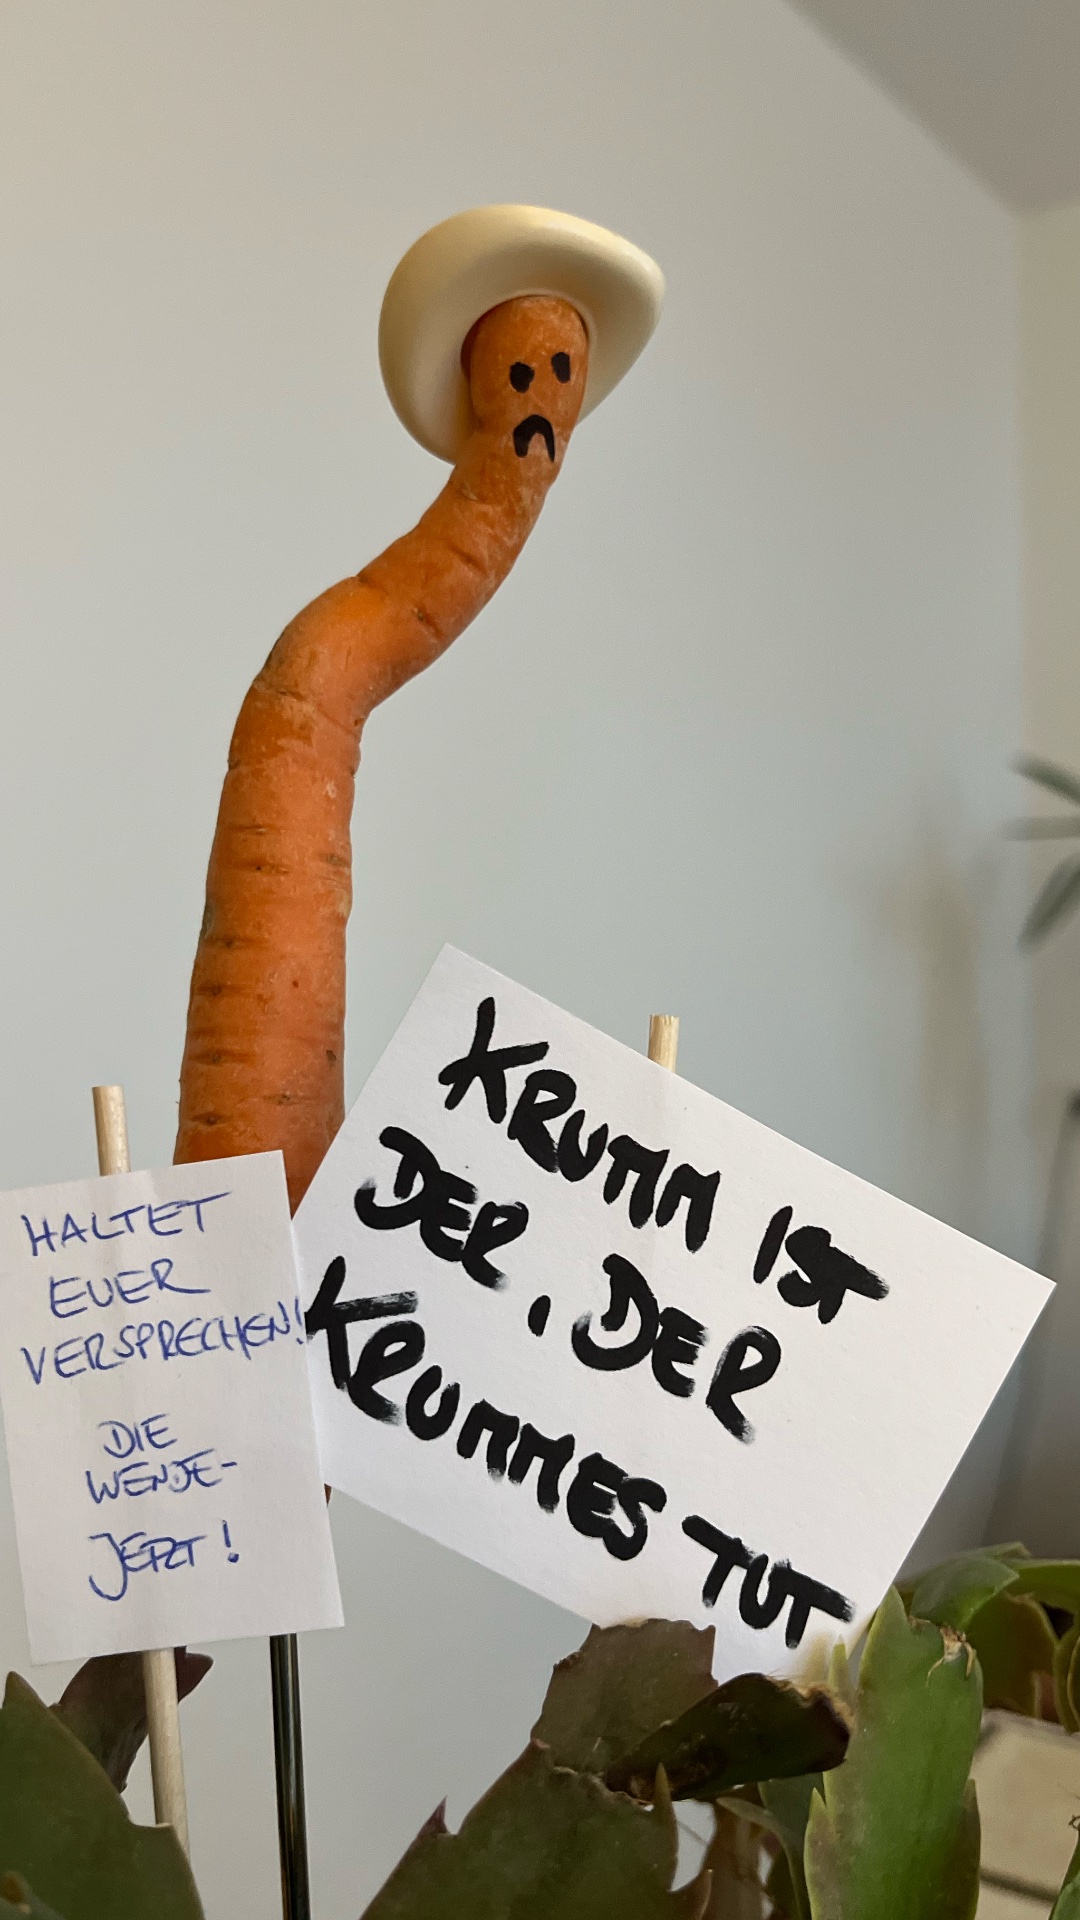 HALTET
EUER
VERSPRECHEN!
DIE
WENDE-
JETZT!
KRUMM IST
DER, DER
KRUMMES TUT